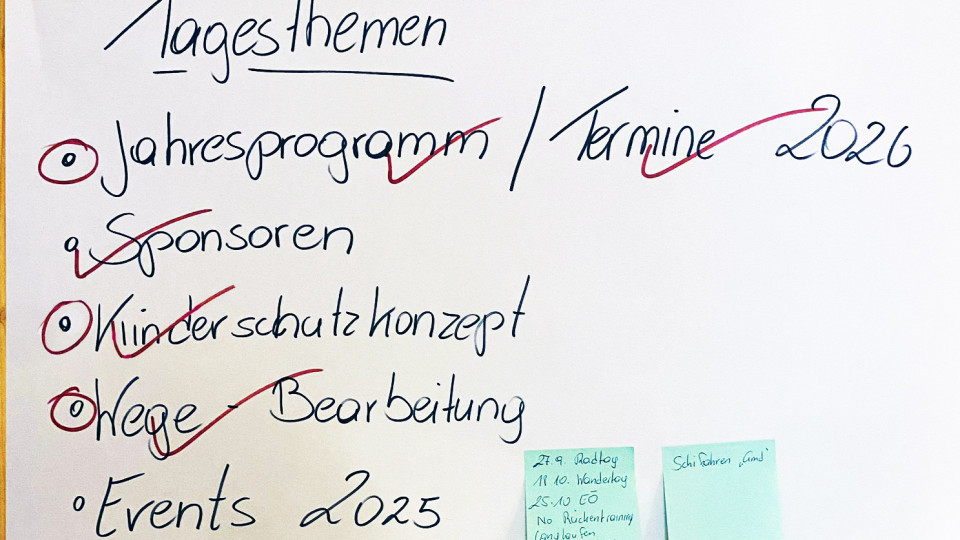 Tagesthemen
Jahresprogramm / Termine 2026
Sponsoren
Kinderschutzkonzept
Wege - Bearbeitung
Events 2025
27.9. Radtag
18 10. Wandertag
25.10 EÖ
No Rückentraining
Langlaufen
Schifahren